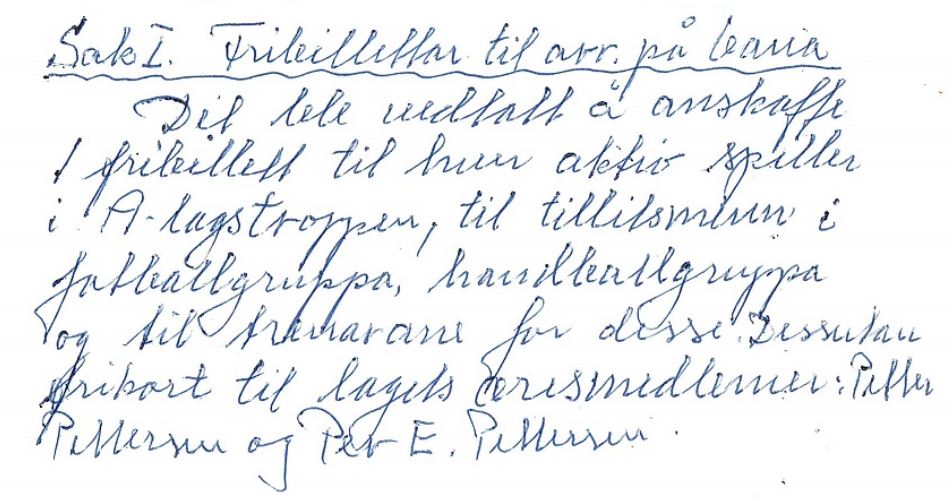 Sak I. Fribillettar til arr. på bania
Det ble vedtatt å anskaffe
1 fribillett til hver aktiv spiller
i A-lagstroppen, til tillitsmenn i
fotballgruppa, handballgruppa
og til trenarane for desse. Dessutan
frikort til lagets æresmedlemer: Petter
Pettersen og Per E. Pettersen.